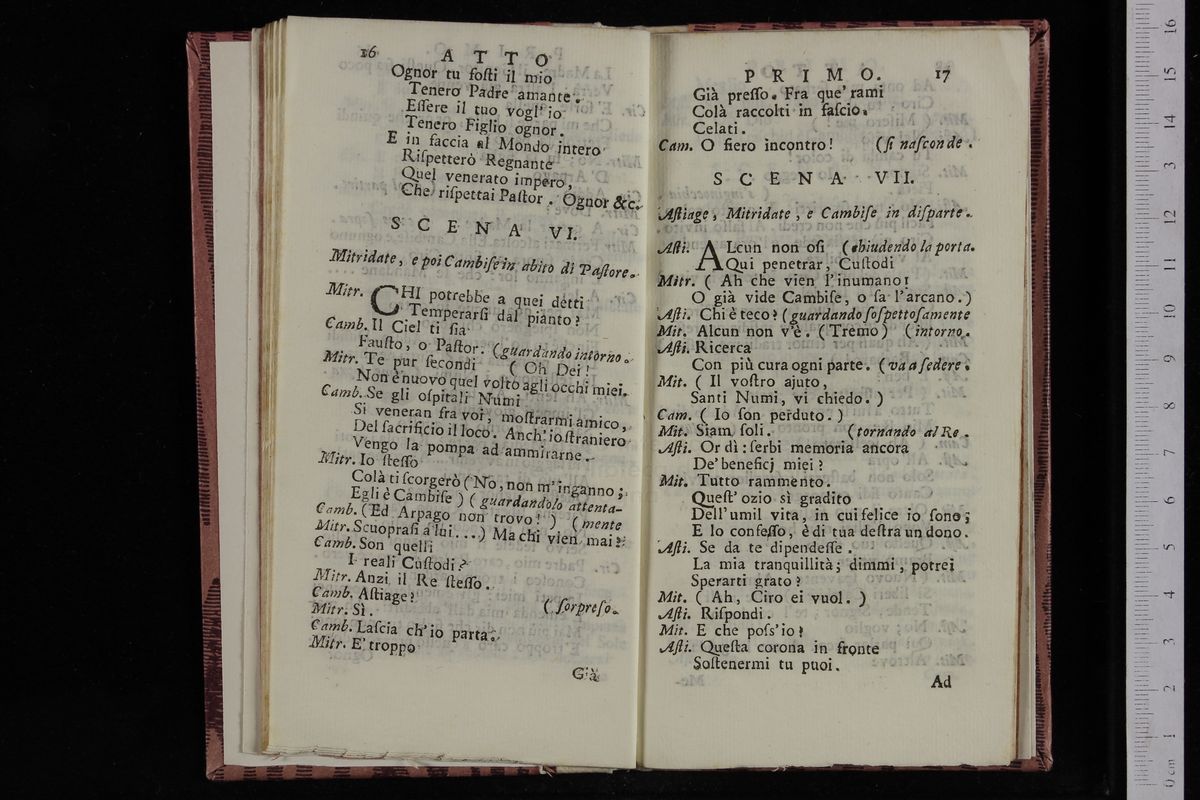 16 A T T O
Ognor tu foſti il mio
Tenero Padre amante.
Eſſere il tuo vogl' io
Tenero Figlio ognor.
E in faccia al Mondo intero
Riſpetterò Regnante
Quel venerato impero,
Che riſpettai Paſtor. Ognor &c.
S C E N A VI.
Mitridate, e poi Cambiſe in abito di Paſtore.
Mitr. CHI potrebbe a quei detti
Temperarſi dal pianto?
Camb. Il Ciel ti ſia
Fauſto, o Paſtor. (guardando intorno.
Mitr. Te pur ſecondi ( Oh Dei!
Non è nuovo quel volto agli occhi miei.
Camb. Se gli oſpitali Numi
Si veneran fra voi, moſtrarmi amico,
Del ſacrificio il loco. Anch' io ſtraniero
Vengo la pompa ad ammirarne.
Mitr. Io ſteſſo
Colà ti ſcorgerò (No, non m'inganno;
Egli è Cambiſe) (guardandolo attenta-
Camb. (Ed Arpago non trovo!) (mente
Mitr. Scuopraſi a lui...) Ma chi vien mai?
Camb. Son quelli
I reali Cuſtodi?
Mitr. Anzi il Re ſteſſo.
Camb. Aſtiage?
Mitr. Sì. (ſorpreſo.
Camb. Laſcia ch'io parta.
Mitr. E' troppo
Già
P R I M O. 17
Già preſſo. Fra que' rami
Colà raccolti in faſcio.
Celati.
Cam. O fiero incontro! (ſi naſconde.
S C E N A VII.
Aſtiage, Mitridate, e Cambiſe in diſparte.
Aſti. ALcun non oſi (chiudendo la porta.
Qui penetrar, Cuſtodi
Mitr. ( Ah che vien l'inumano!
O già vide Cambiſe, o ſa l'arcano.)
Aſti. Chi è teco? (guardando ſoſpettoſamente
Mit. Alcun non v'è. (Tremo) (intorno.
Aſti. Ricerca
Con più cura ogni parte. (va a ſedere.
Mit. ( Il voſtro ajuto,
Santi Numi, vi chiedo. )
Cam. ( Io ſon perduto. )
Mit. Siam ſoli. (tornando al Re.
Aſti. Or dì: ſerbi memoria ancora
De' beneficj miei?
Mit. Tutto rammento.
Queſt' ozio sì gradito
Dell'umil vita, in cui felice io ſono;
E lo confeſſo, è di tua deſtra un dono.
Aſti. Se da te dipendeſſe.
La mia tranquillità; dimmi, potrei
Sperarti grato?
Mit. ( Ah, Ciro ei vuol. )
Aſti. Riſpondi.
Mit. E che poſs'io?
Aſti. Queſta corona in fronte
Soſtenermi tu puoi.
Ad
16
15
14
13
12
11
10
9
8
7
6
5
4
3
2
1
0 cm